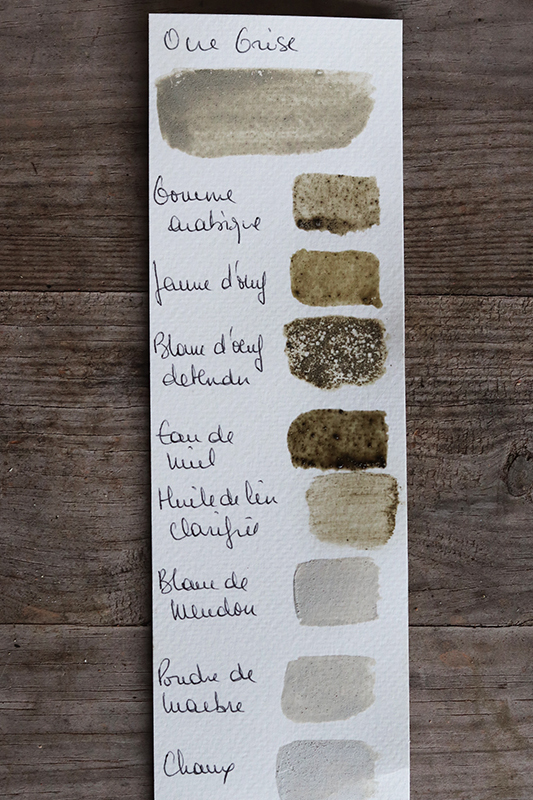 Ocre Grise
Gomme
arabique
Jaune d'œuf
Blanc d'œuf
detendu
Eau de
miel
Huile de lin
clarifiée
Blanc de
Meudon
Poudre de
marbre
Chaux